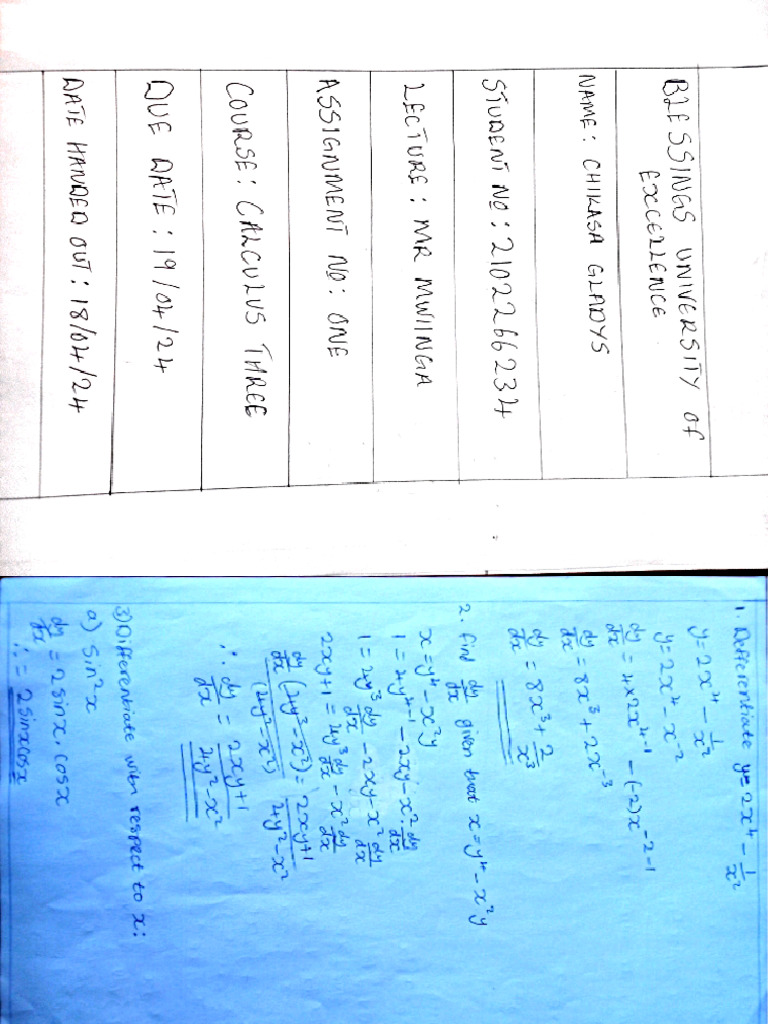 BLESSINGS UNIVERSITY of
EXCELLENCE
NAME: CHIKASA GLADYS
STUDENT NO: 2102266234
LECTURE: MR MWIINGA
ASSIGNMENT NO: ONE
COURSE: CALCULUS THREE
DUE DATE: 19/04/24
DATE HANDED OUT: 18/04/24
1. Differentiate y = 2x⁴ - 1/x²
y = 2x⁴ - 1/x²
y = 2x⁴ - x⁻²
dy/dx = 4×2x⁴⁻¹ - (-2)x⁻²⁻¹
dy/dx = 8x³ + 2x⁻³
dy/dx = 8x³ + 2/x³
2. find dy/dx given that x = y⁴ - x²y
x = y⁴ - x²y
1 = 4y⁴⁻¹ - 2xy - x² dy/dx
1 = 4y³ dy/dx - 2xy - x² dy/dx
2xy + 1 = 4y³ dy/dx - x² dy/dx
dy/dx (4y³ - x²)/(4y² - x²) = 2xy + 1/4y² - x²
∴ dy/dx = 2xy + 1/4y² - x²
3) Differentiate with respect to x:
a) Sin²x
dy/dx = 2 sinx . cosx
∴ = 2 sinxcosx